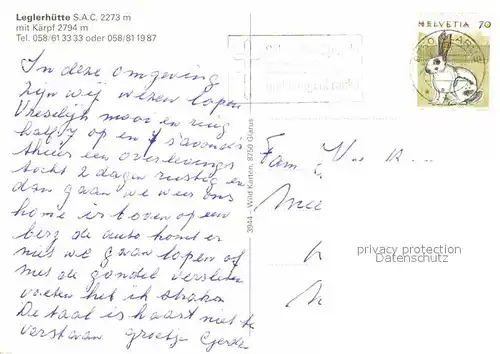 Leglerhütte S.A.C. 2273 m
mit Kärpf 2794 m
Tel. 058/61 33 33 oder 058/81 19 87
HELVETIA 70
In deze omgeving
zijn wij wezen lopen
Vreselijk mooi en ruig
half 7 op en 's avonds
thuis een overlevings
tocht 2 dagen rustig en
dan gaan we weer ons
home is boven op een
berg de auto komt er
niet we gaan lopen of
met de gondel versleten
voeten heb ik straks
De taal is haast niet te
verstaan groetjes
Fam V
3944 – Wild Karten, 8750 Glarus
privacy protection
Datenschutz